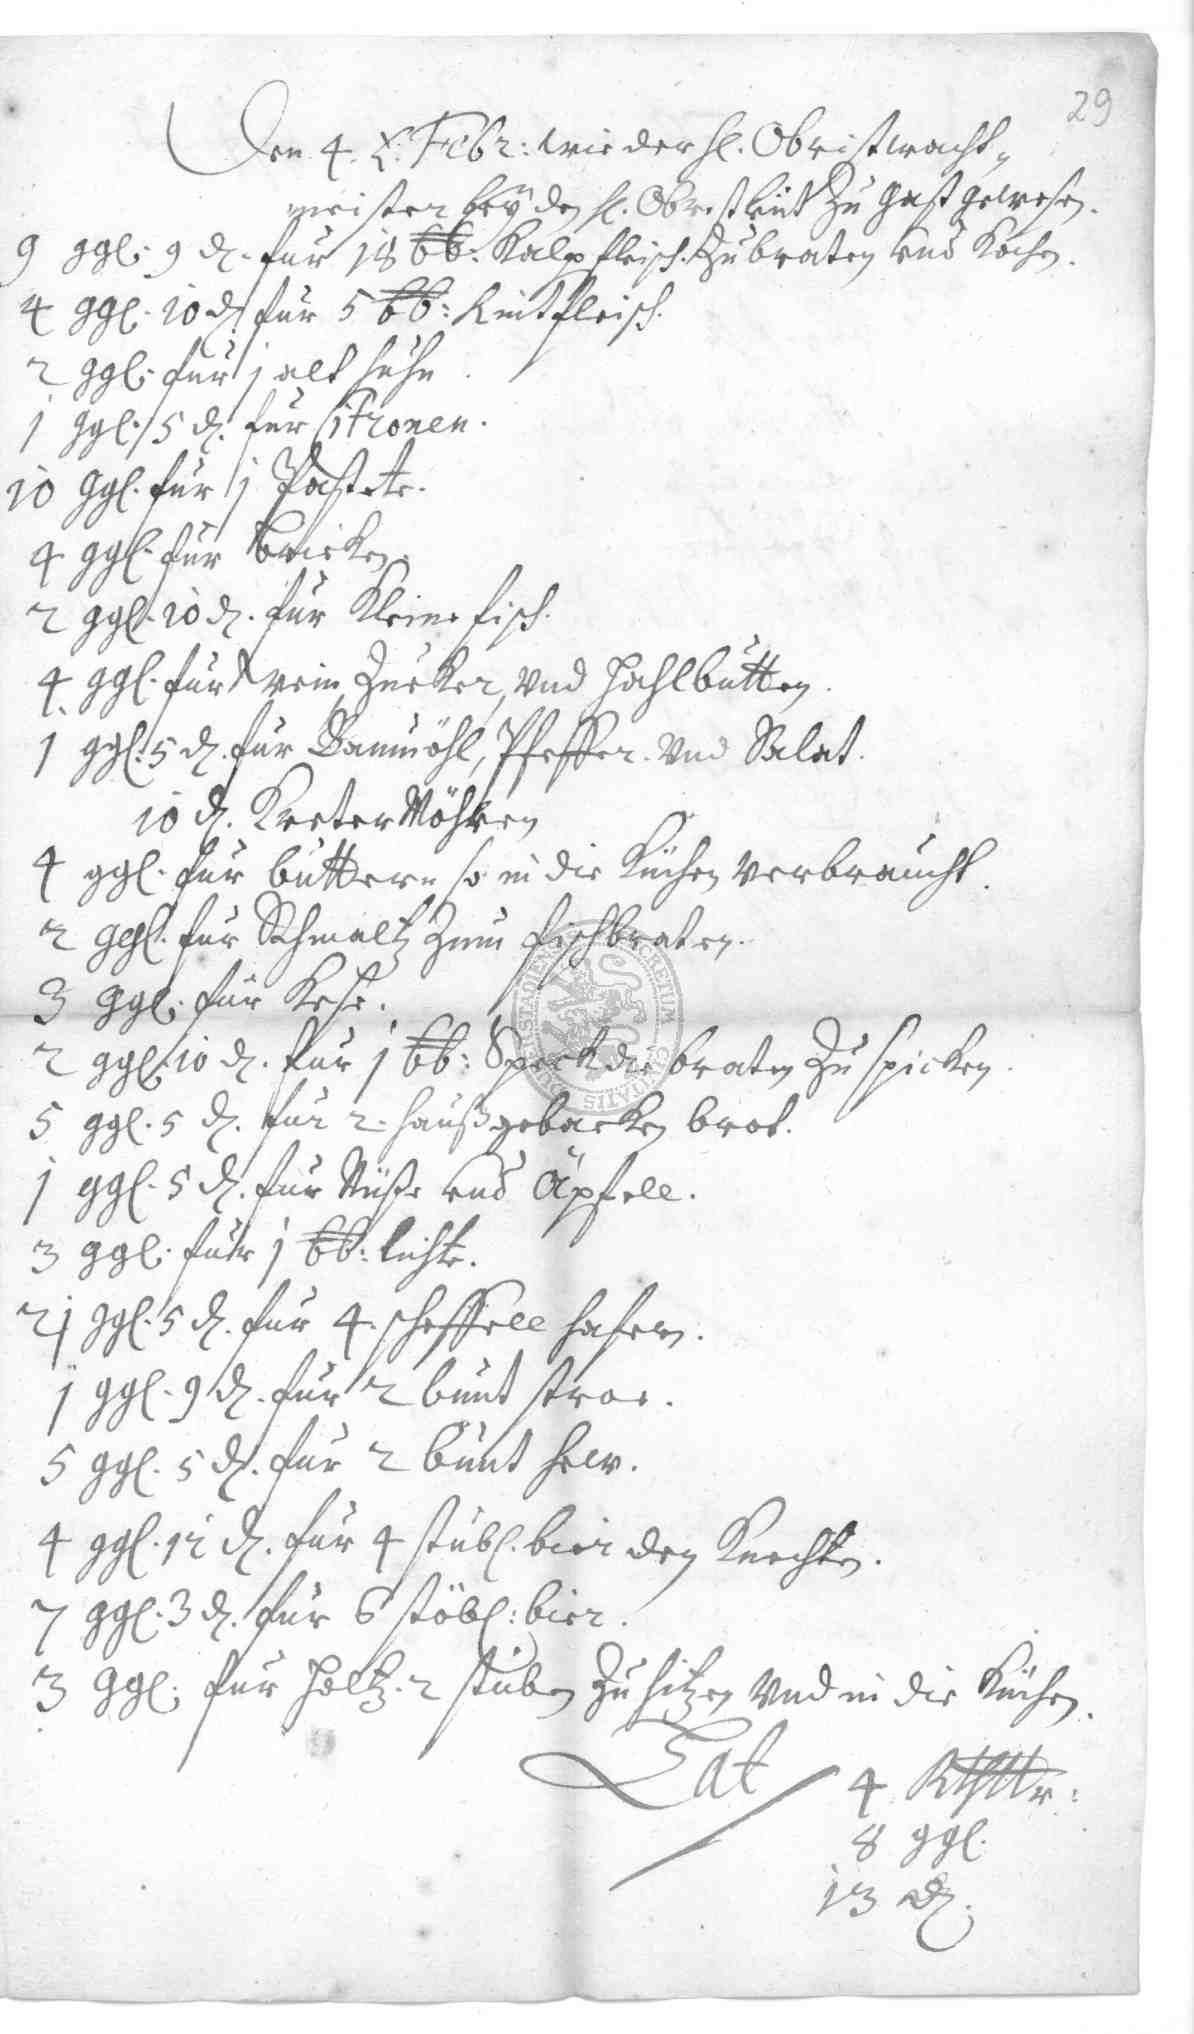 29
Den 4. Febr: wie der H. Obristwacht-
meister bey den H. Obristleut Zu gast gewesen.
9 ggl. 9 d. für 18 ℔: Kalpfleisch Zu braten und Kochen.
4 ggl. 10 d. für 5 ℔: Rintfleisch.
2 ggl. für 1 alt Huhn.
1 ggl. 5 d. für Citronen.
10 ggl. für 1 Pastete.
4 ggl. für Bricken.
2 ggl. 10 d. für Kleine fisch.
4 ggl. für wein Zucker, und Hahlbutten.
1 ggl. 5 d. für Baumöhl, Pfeffer. Und Salat.
10 d. Möhren
4 ggl. für buttern so in die Küchen verbraucht.
2 ggl. für Schmaltz Zum fischbraten.
3 ggl. für Kese.
2 ggl. 10 d. für 1 ℔: Speck die braten Zu spicken.
5 ggl. 5 d. für 2 haußgebacken brot.
1 ggl. 5 d. für Nüße und Äpfell.
3 ggl. für 1 ℔: lichte.
21 ggl. 5 d. für 4. scheffell hafern.
1 ggl. 9 d. für 2 bunt stroe.
5 ggl. 5 d. für 2 bunt hew.
4 ggl. 12 d. für 4 stübl. bier den Knechten.
7 ggl. 3 d. für 6 stöbl: bier.
3 ggl. für Holtz 2 stuben Zu hitzen Und in die Küchen.
Lat 4 Rthlr:
8 ggl.
13 d.
SECRETUM CIVITATIS